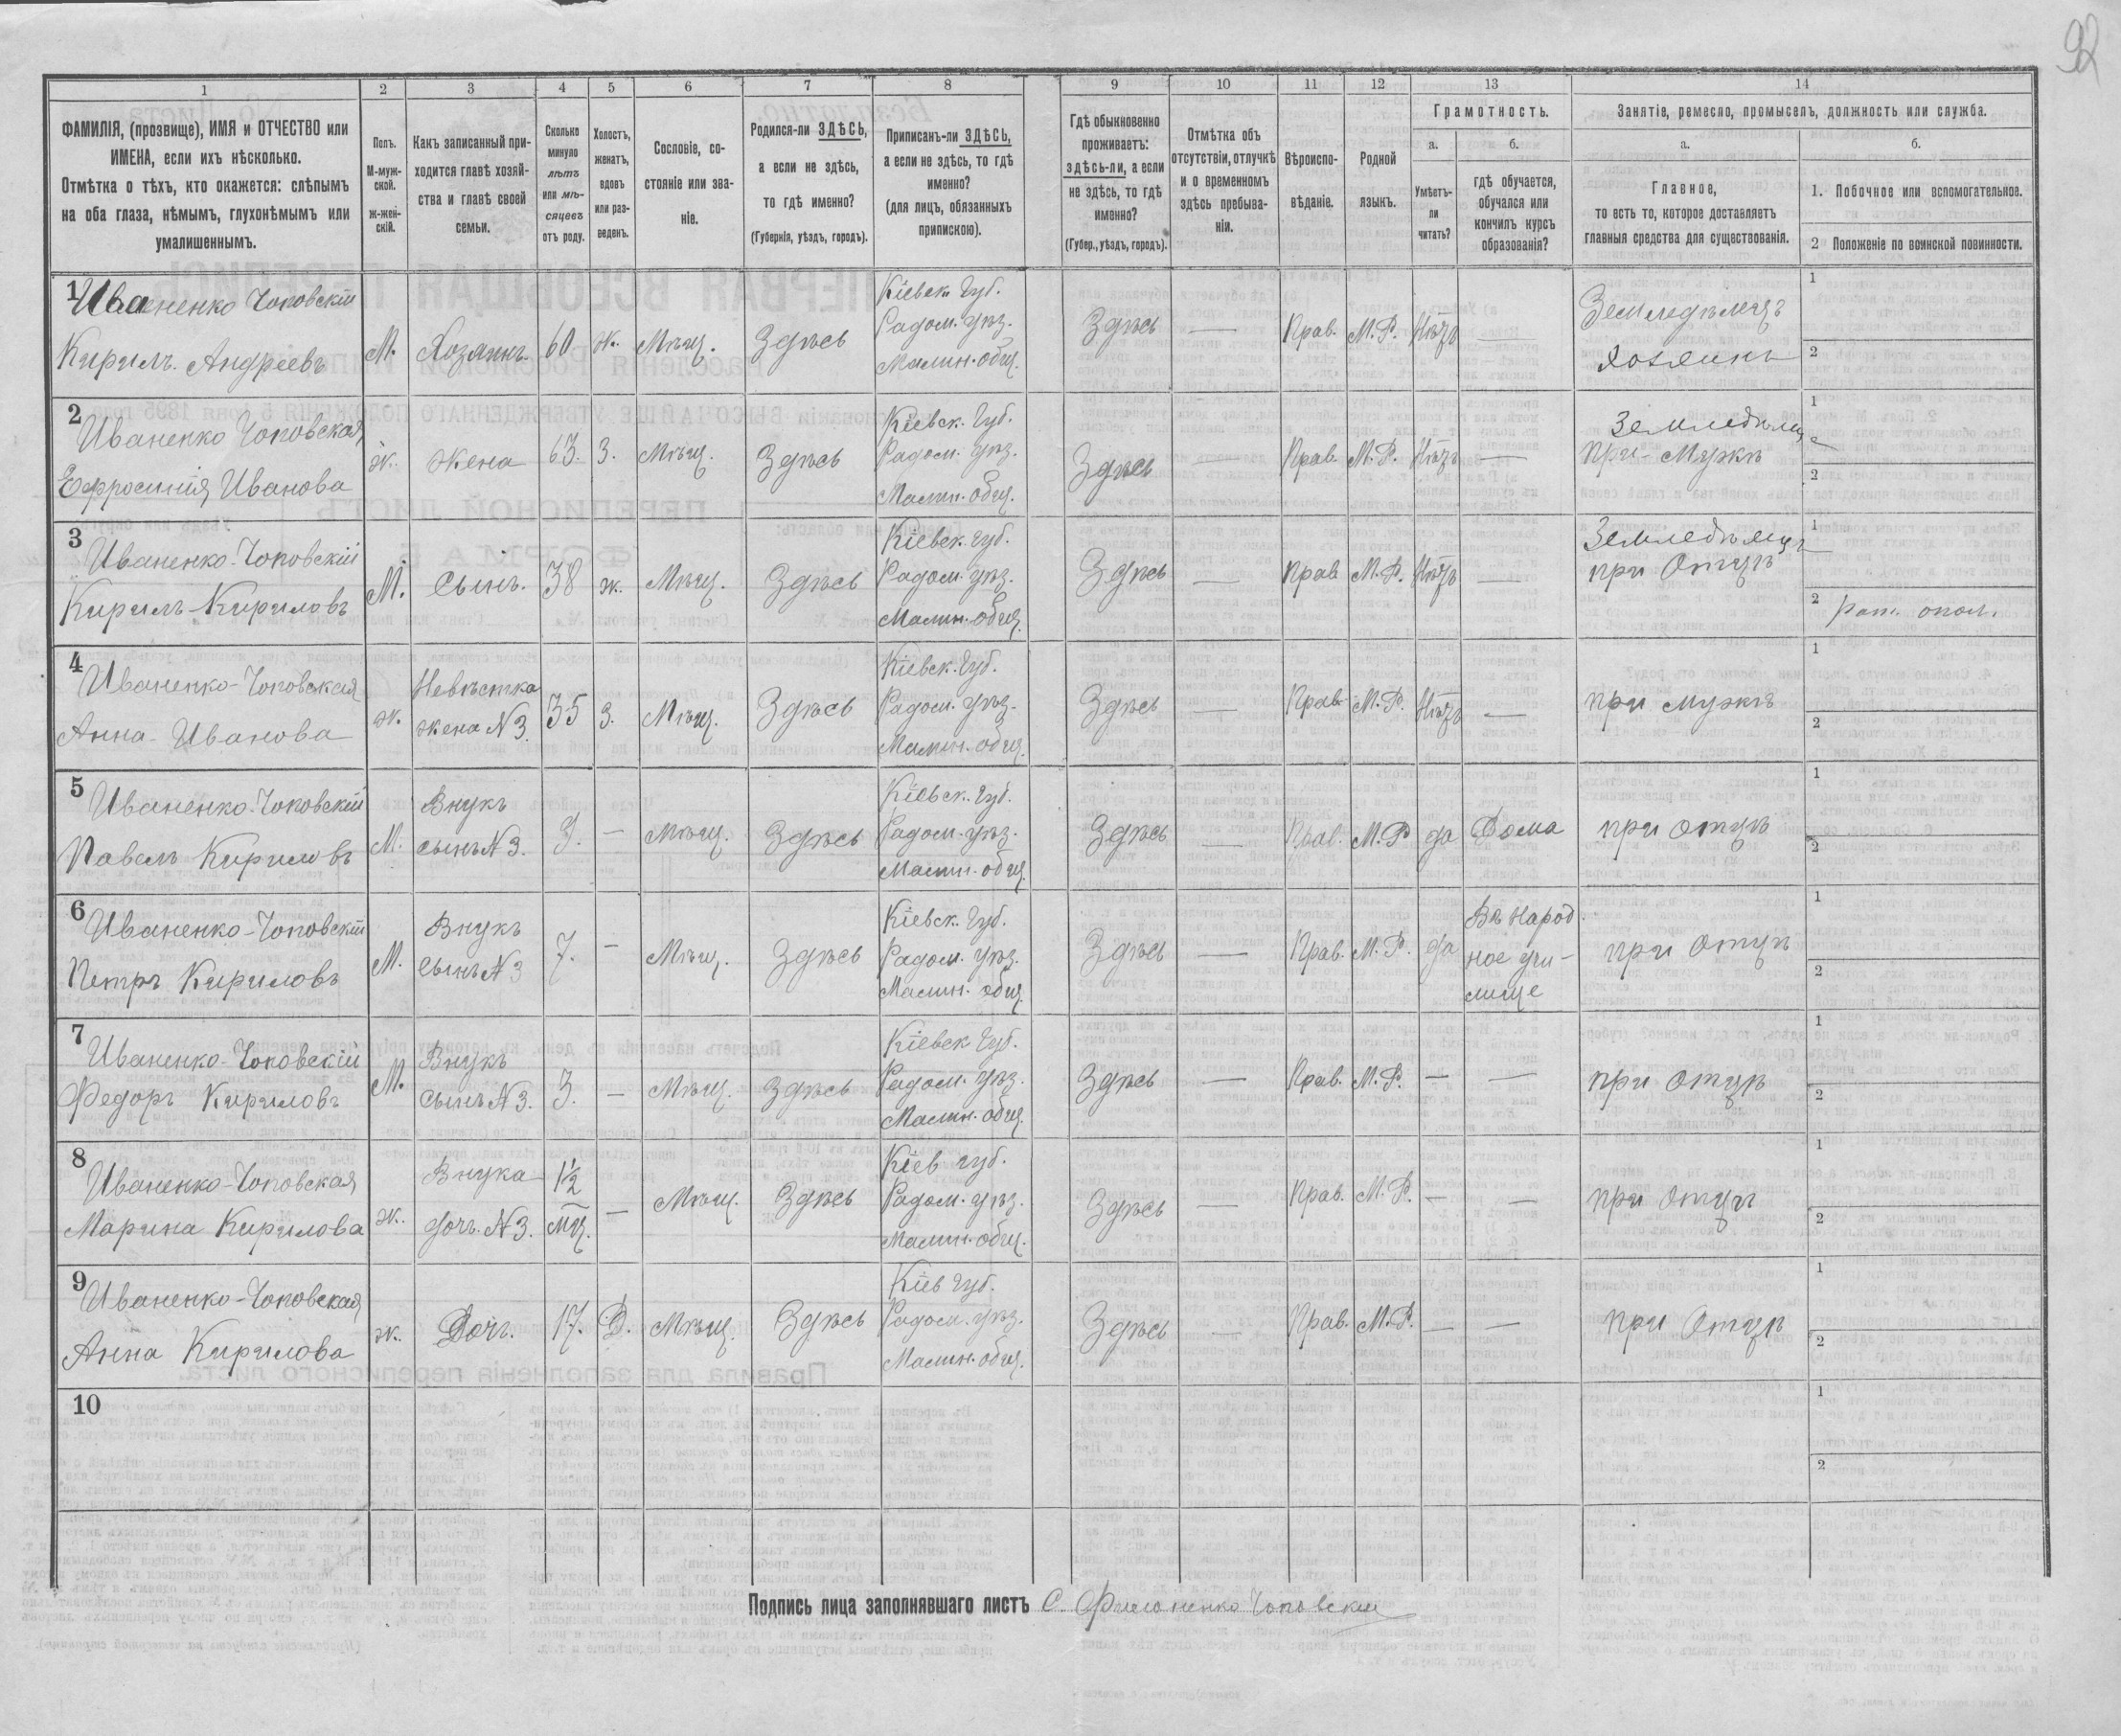 92
1 2 3 4 5 6 7 8 9 10 11 12 13 14
ФАМИЛІЯ, (прозвище), ИМЯ и ОТЧЕСТВО или ИМЕНА, если ихъ нѣсколько.
Отмѣтка о тѣхъ, кто окажется: слѣпымъ на оба глаза, нѣмымъ, глухонѣмымъ или умалишеннымъ.
Полъ. М-муж-ской. ж-жен-скій.
Какъ записанный при-ходится главѣ хозяй-ства и главѣ своей семьи.
Сколько минуло лѣтъ или мѣ-сяцевъ отъ роду.
Холостъ, женатъ, вдовъ или раз-веденъ.
Сословіе, со-стояніе или зва-ніе.
Родился-ли ЗДѢСЬ, а если не здѣсь, то гдѣ именно? (Губернія, уѣздъ, городъ).
Приписанъ-ли ЗДѢСЬ, а если не здѣсь, то гдѣ именно? (для лицъ, обязанныхъ припискою).
Гдѣ обыкновенно проживаетъ: здѣсь-ли, а если не здѣсь, то гдѣ именно? (Губер., уѣздъ, городъ).
Отмѣтка объ отсутствіи, отлучкѣ и о временномъ здѣсь пребыва-ніи.
Вѣроиспо-вѣданіе.
Родной языкъ.
Грамотность.
а. Умѣетъ-ли читать?
б. гдѣ обучается, обучался или кончилъ курсъ образованія?
Занятіе, ремесло, промыселъ, должность или служба.
а. Главное, то есть то, которое доставляетъ главныя средства для существованія.
б.
1. Побочное или вспомогательное.
2 Положеніе по воинской повинности.
1 Иваненко Чоповскій Кирилъ. Андреевъ М. Хозяинъ. 60 ж. Мѣщ. Здѣсь Кіевск. Губ. Радом. уѣз. Малин. общ. Здѣсь — Прав. М. Р. Нѣтъ — Земледѣлецъ Хозяинъ 1 2
2 Иваненко Чоповская Ефросинія Иванова ж. Жена 63. З. Мѣщ. Здѣсь Кіевск. Губ. Радом. уѣз. Малин. общ. Здѣсь — Прав. М. Р. Нѣтъ — при Мужѣ 1 2
3 Иваненко-Чоповскій Кирилъ Кириловъ М. Сынъ. 38 ж. Мѣщ. Здѣсь Кіевск. Губ. Радом. уѣз. Малин. общ. Здѣсь — Прав М. Р. Нѣтъ — Земледѣлецъ при Отцѣ 1 2 рат. опол.
4 Иваненко-Чоповская Анна Иванова ж. Невѣстка жена N 3. 35 З. Мѣщ. Здѣсь Кіевск. Губ. Радом. уѣз. Малин. общ. Здѣсь — Прав М. Р. Нѣтъ — при мужѣ 1 2
5 Иваненко-Чоповскій Павелъ Кириловъ М. Внукъ сынъ N 3. 9. — Мѣщ. Здѣсь Кіевск. Губ. Радом. уѣз. Малин. общ. Здѣсь — Прав. М. Р да Дома при отцѣ 1 2
6 Иваненко-Чоповскій Петръ Кириловъ М. Внукъ Сынъ N 3 7. — Мѣщ. Здѣсь Кіевск. Губ. Радом. уѣз. Малин. общ. Здѣсь — Прав. М. Р. да Въ Народ-ное учи-лище при Отцѣ 1 2
7 Иваненко-Чоповскій Федоръ Кириловъ М. Внукъ Сынъ N 3. 3. — Мѣщ. Здѣсь Кіевск Губ. Радом. уѣз. Малин. общ. Здѣсь — Прав. М. Р. — — при отцѣ 1 2
8 Иваненко-Чоповская Марина Кирилова ж. Внука дочь. N 3. 1½ мц. — Мѣщ. Здѣсь Кіев губ. Радом. уѣз. Малин. общ. Здѣсь — Прав. М. Р. — — при Отцѣ 1 2
9 Иваненко-Чоповская Анна Кирилова ж. Дочь. 17. Д. Мѣщ. Здѣсь Кіев Губ. Радом. уѣз. Малин. общ. Здѣсь — Прав. М. Р. — — при Отцѣ 1 2
10 1 2
Подпись лица заполнявшаго листъ С. Филоненко Чоповскій